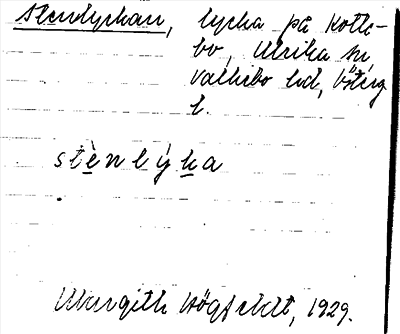 Stenlyckan, lycka på Kott-
bo, Ulrika sn
Valkebo hd, Österg
l.
stènlýka
Margith Högfeldt, 1929.